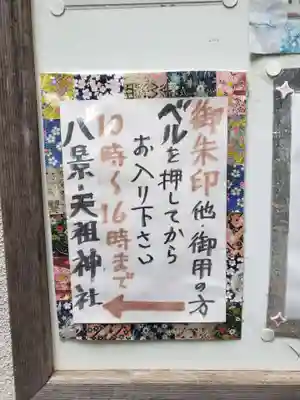 御朱印他・御用の方
ベルを押してから
お入り下さい
10時〜16時まで
八景・天祖神社